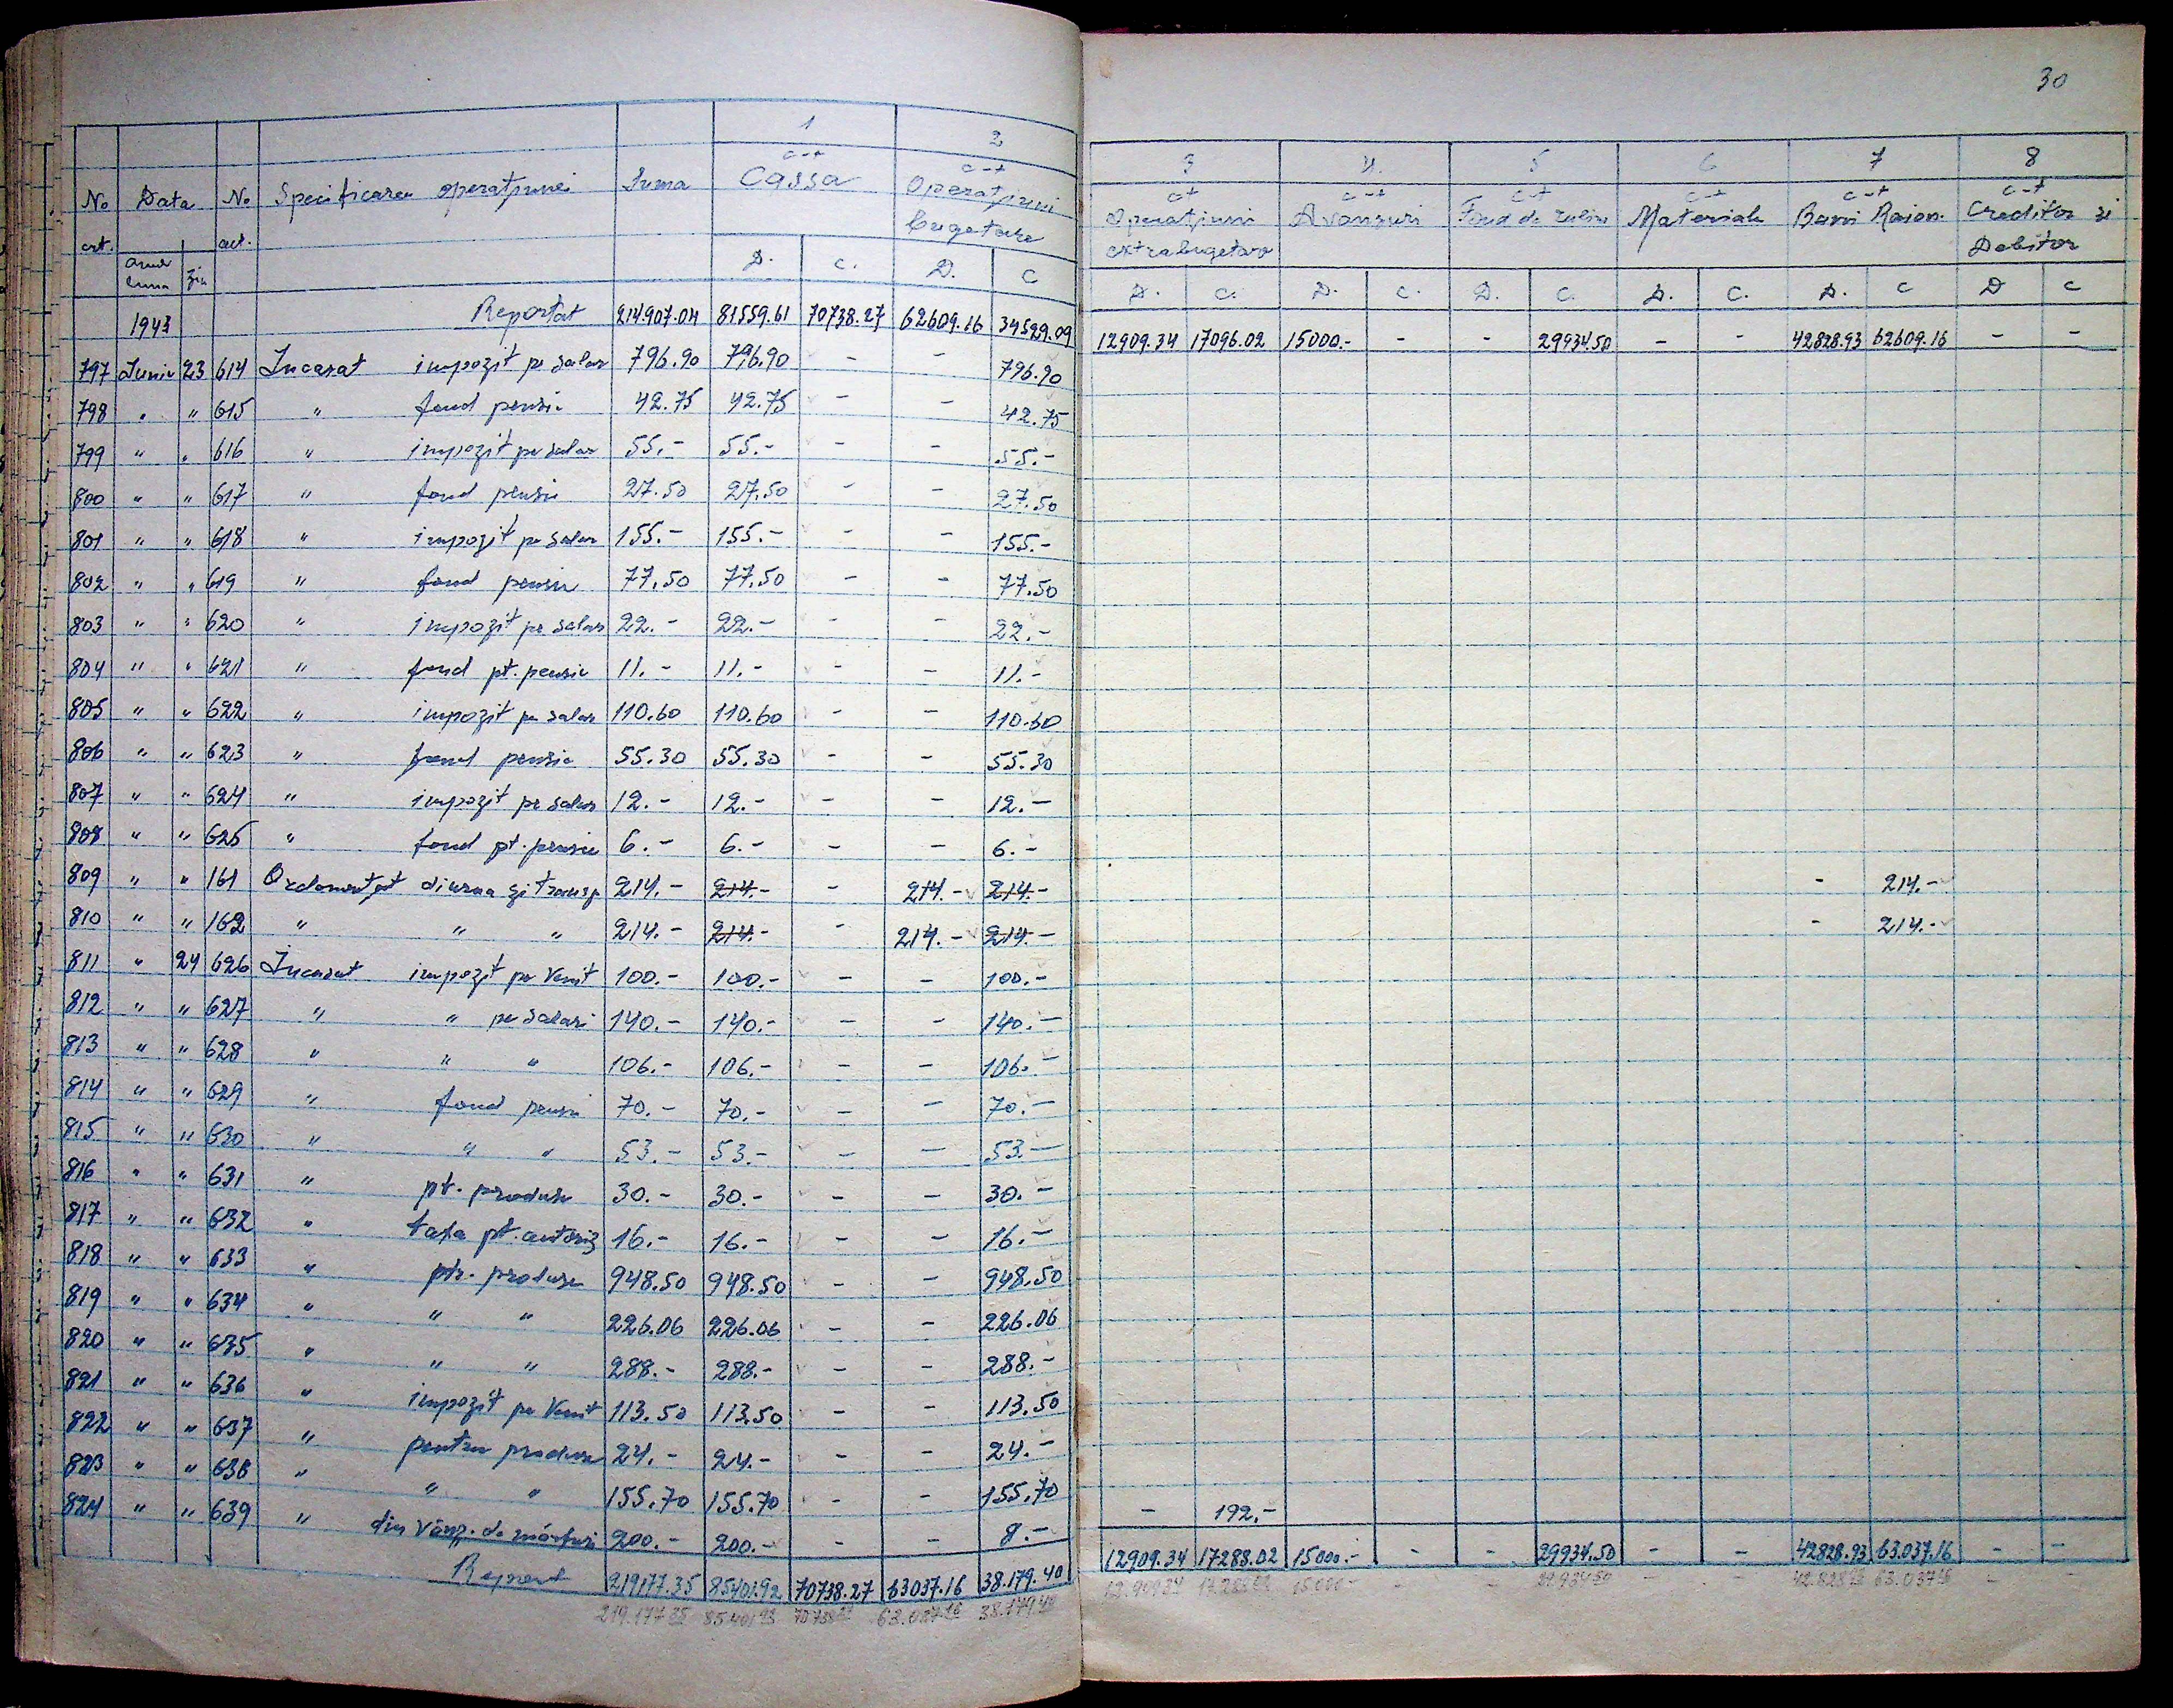 30
1 2 3 4. 5 6 7 8
No crt. Data No. act. Specificarea operațiunei Suma c-t Cassa c-t Operațiuni bugetare c-t Operațiuni extrabugetare c-t Avansuri c-t Fond de rulm c-t Materiale c-t Banci Raion. c-t Creditor și Debitor
anul luna ziu D. C. D. C D. C. D. C. D. C. D. C. D. C D C
1943 Reportat 214907.04 81559.61 70738.27 62609.16 34529.09 12909.34 17096.02 15000.- - - 29934.50 - - 42828.93 62609.16 - -
797 Iunie 23 614 Incasat impozit pe salar 796.90 796.90 - - 796.90
798 " " 615 " fond pensie 42.75 42.75 - - 42.75
799 " " 616 " impozit pe salar 55.- 55.- - - 55.-
800 " " 617 " fond pensie 27.50 27.50 - - 27.50
801 " " 618 " impozit pe salar 155.- 155.- - - 155.-
802 " " 619 " fond pensie 77.50 77.50 - - 77.50
803 " " 620 " impozit pe salar 22.- 22.- - - 22.-
804 " " 621 " fond pt. pensie 11.- 11.- - - 11.-
805 " " 622 " impozit pe salar 110.60 110.60 - - 110.60
806 " " 623 " fond pensie 55.30 55.30 - - 55.30
807 " " 624 " impozit pe salar 12.- 12.- - - 12.-
808 " " 625 " fond pt. pensie 6.- 6.- - - 6.-
809 " " 161 Ordonanțat diurna și transp 214.- 214.- - 214.- 214.- - 214.-
810 " " 162 " " " 214.- 214.- - 214.- 214.- - 214.-
811 " 24 626 Incasat impozit pe Venit 100.- 100.- - - 100.-
812 " " 627 " " pe salari 140.- 140.- - - 140.-
813 " " 628 " " " 106.- 106.- - - 106.-
814 " " 629 " fond pensii 70.- 70.- - - 70.-
815 " " 630 " " " 53.- 53.- - - 53.-
816 " " 631 " pt. produse 30.- 30.- - - 30.-
817 " " 632 " taxa pt. autoriz 16.- 16.- - - 16.-
818 " " 633 " ptr. produse 948.50 948.50 - - 948.50
819 " " 634 " " " 226.06 226.06 - - 226.06
820 " " 635 " " " 288.- 288.- - - 288.-
821 " " 636 " impozit pe Venit 113.50 113.50 - - 113.50
822 " " 637 " pentru produse 24.- 24.- - - 24.-
823 " " 638 " " " 155.70 155.70 - - 155.70
824 " " 639 " din Vânz. de mărfuri 200.- 200.- - - 8.- - 192.-
Report 219177.35 85401.92 70738.27 63037.16 38.179.40 12909.34 17288.02 15000.- - - 29934.50 - - 42828.93 63.037.16 - -
219.177.35 85.401.93 70738.27 63.037.16 38.179.40 12.909.34 17.288.02 15.000- - - 29.934.50 - - 42.828.93 63.037.16 - -